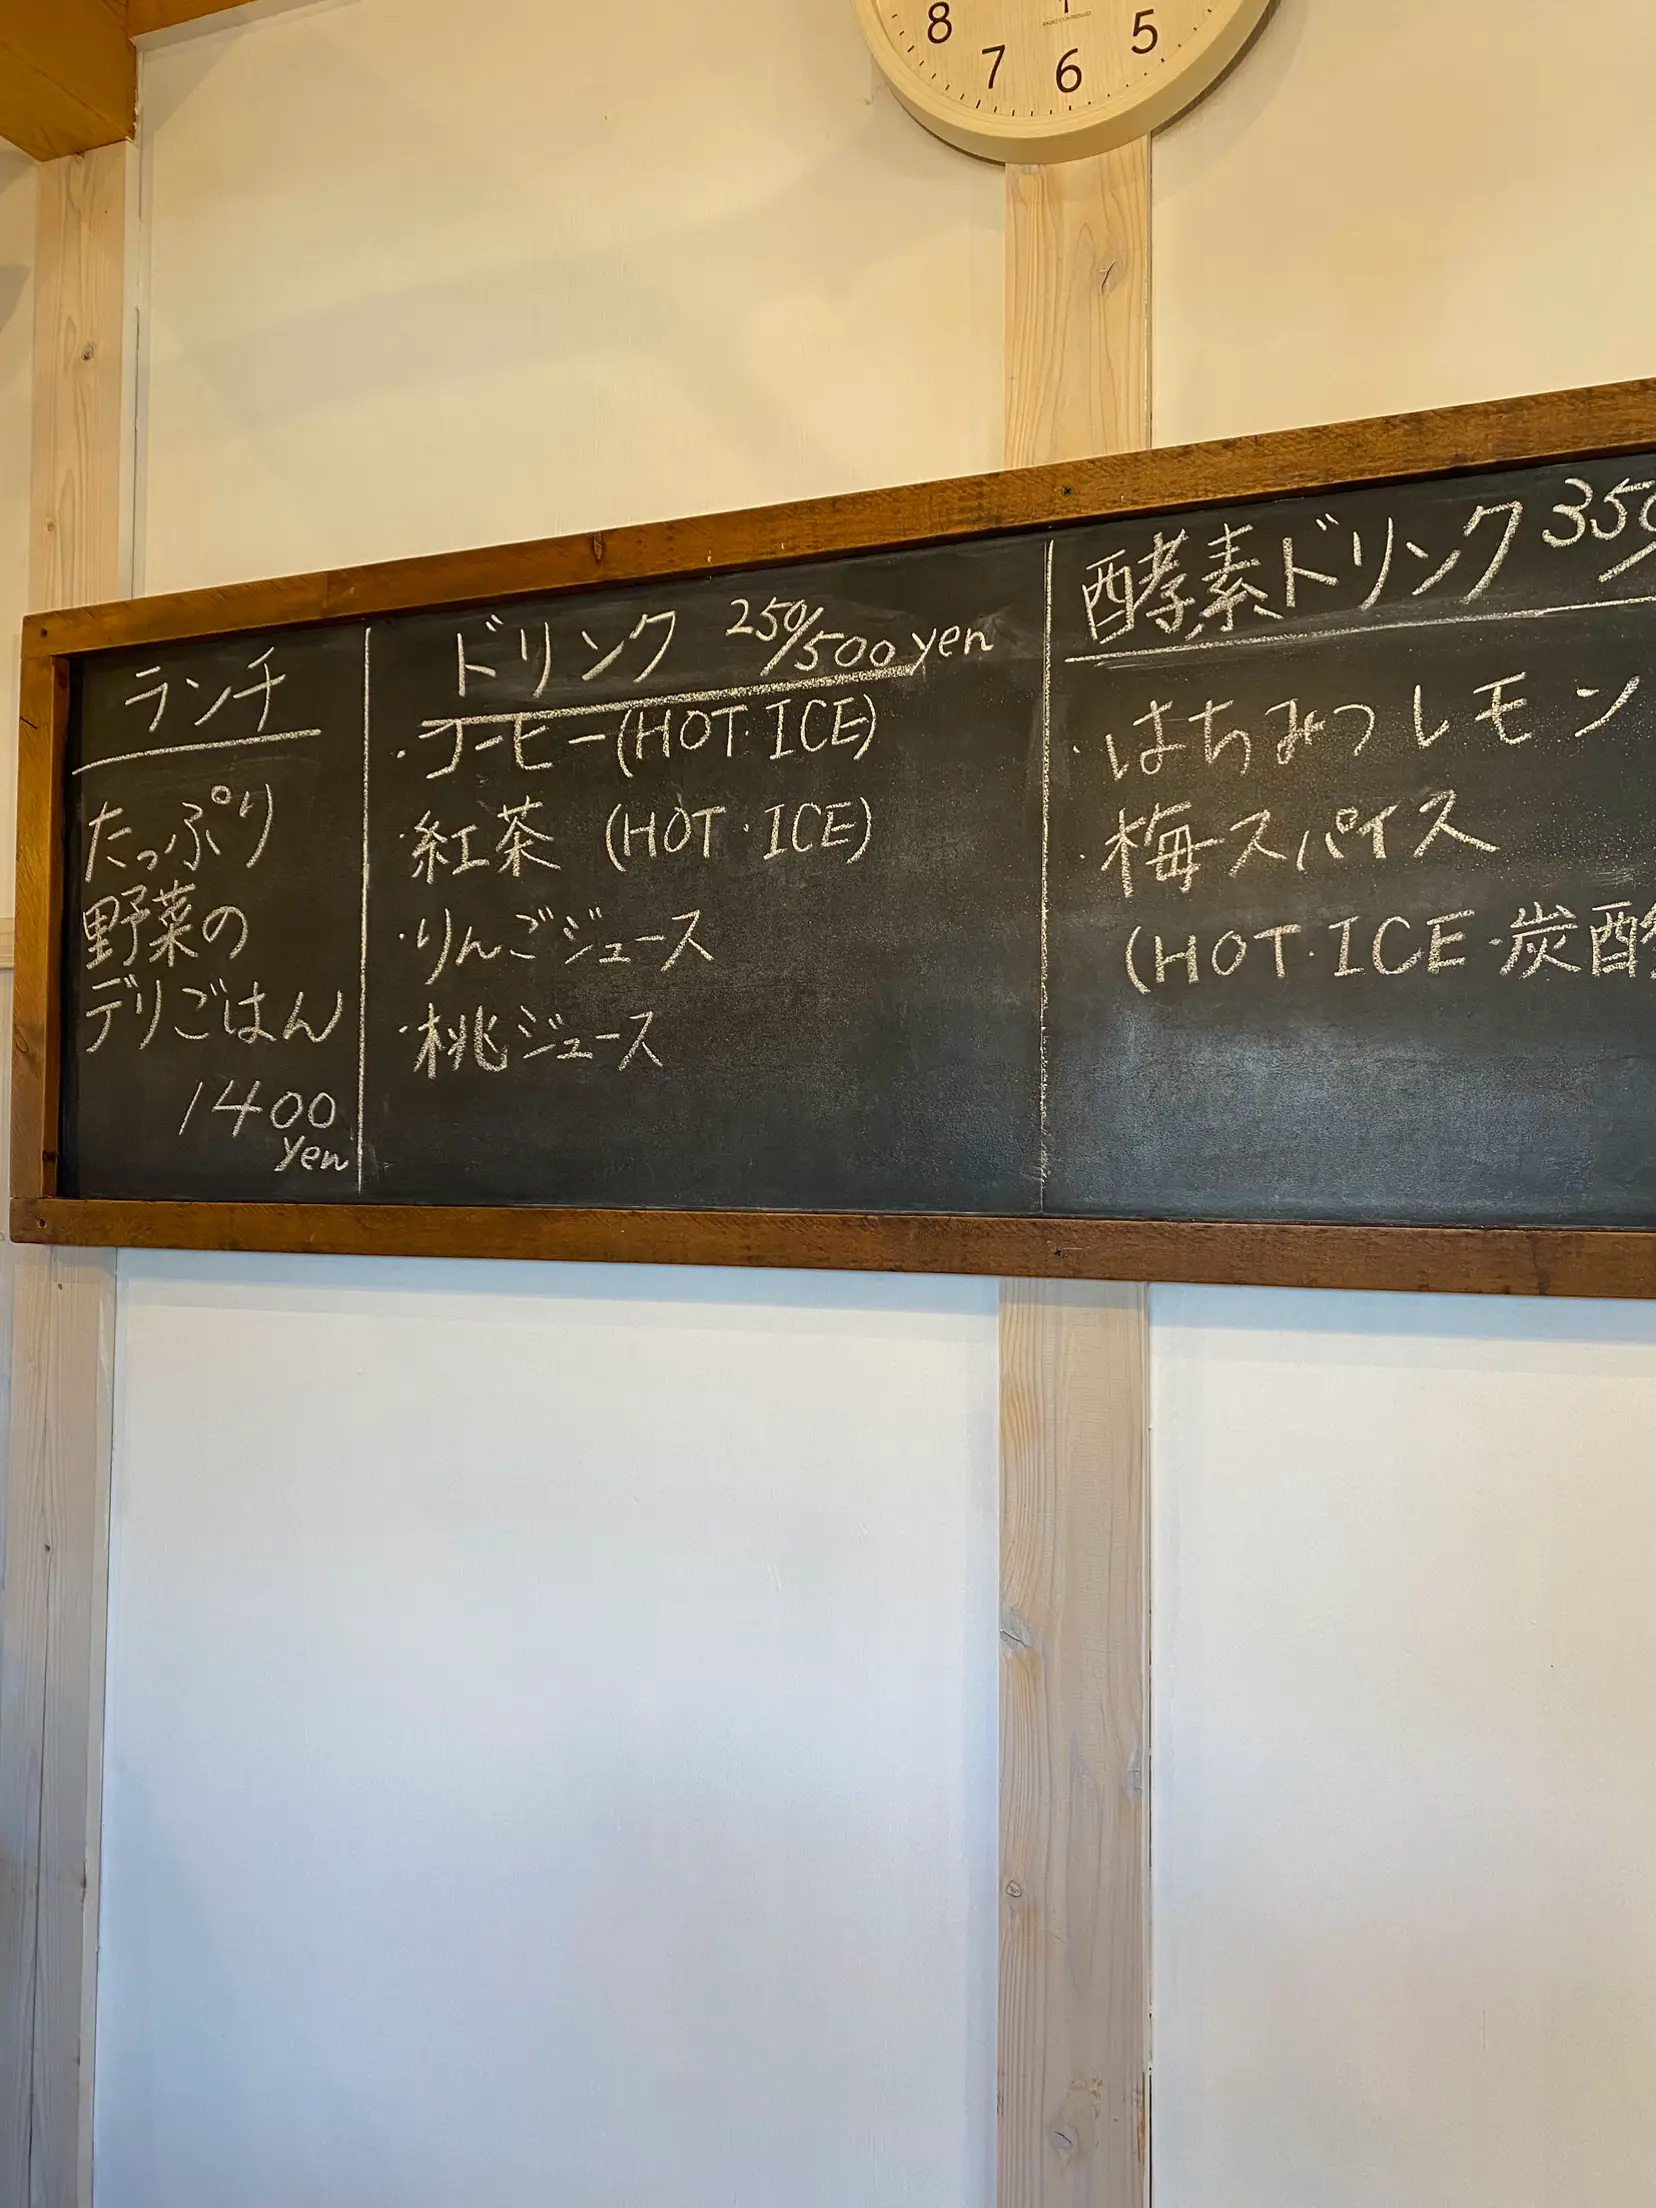 8 7 6 5
ランチ
たっぷり
野菜の
デリごはん
1400
yen
ドリンク 250/500 yen
・コーヒー(HOT・ICE)
・紅茶 (HOT・ICE)
・りんごジュース
・桃ジュース
酵素ドリンク 350/
・はちみつレモン
・梅スパイス
(HOT・ICE・炭酸